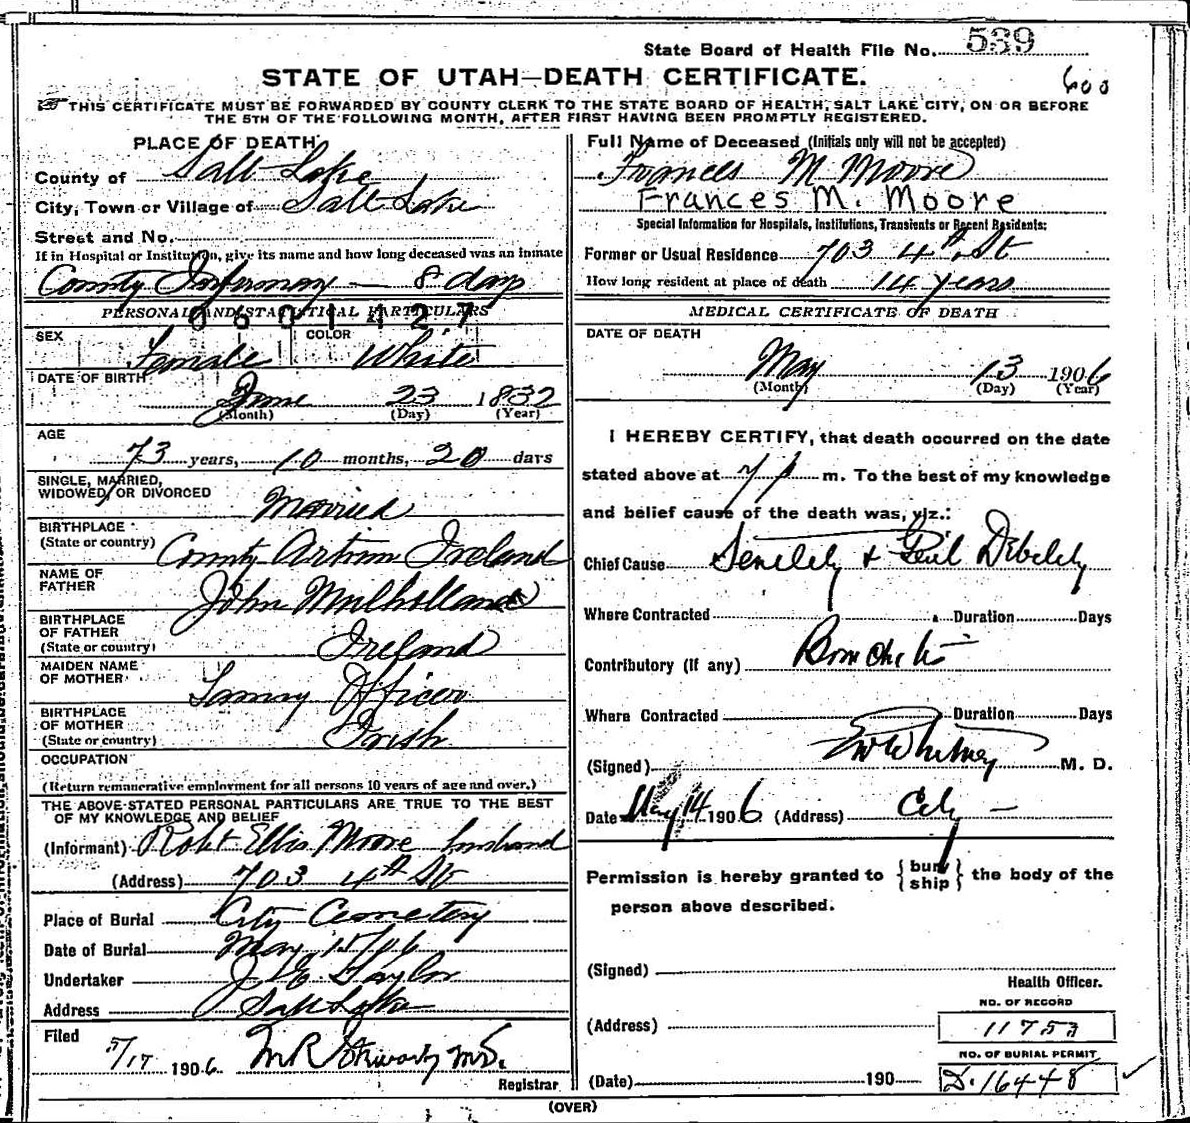 State Board of Health File No. 539
STATE OF UTAH—DEATH CERTIFICATE.
600
THIS CERTIFICATE MUST BE FORWARDED BY COUNTY CLERK TO THE STATE BOARD OF HEALTH, SALT LAKE CITY, ON OR BEFORE
THE 5TH OF THE FOLLOWING MONTH, AFTER FIRST HAVING BEEN PROMPTLY REGISTERED.
PLACE OF DEATH
County of Salt Lake
City, Town or Village of Salt Lake
Street and No.
If in Hospital or Institution, give its name and how long deceased was an inmate
County Infirmary — 8 days
PERSONAL AND STATISTICAL PARTICULARS
0601427
SEX Female COLOR White
DATE OF BIRTH
June 23 1832
(Month) (Day) (Year)
AGE
73 years, 10 months, 20 days
SINGLE, MARRIED,
WIDOWED, OR DIVORCED Married
BIRTHPLACE
(State or country) County Antrim Ireland
NAME OF
FATHER John Mulholland
BIRTHPLACE
OF FATHER
(State or country) Ireland
MAIDEN NAME
OF MOTHER Officer
BIRTHPLACE
OF MOTHER
(State or country) Irish
OCCUPATION
(Return remunerative employment for all persons 10 years of age and over.)
THE ABOVE-STATED PERSONAL PARTICULARS ARE TRUE TO THE BEST
OF MY KNOWLEDGE AND BELIEF
(Informant) Robt Ellis Moore husband
(Address) 703 4th St
Place of Burial City Cemetery
Date of Burial May 15/06
Undertaker Taylor
Address Salt Lake
Filed
5/17 1906 M R Stewart M.D.
Registrar
Full Name of Deceased (Initials only will not be accepted)
Frances M Moore
Frances M. Moore
Special Information for Hospitals, Institutions, Transients or Recent Residents:
Former or Usual Residence 703 4th St
How long resident at place of death 14 years
MEDICAL CERTIFICATE OF DEATH
DATE OF DEATH
May 13 1906
(Month) (Day) (Year)
I HEREBY CERTIFY, that death occurred on the date
stated above at 7 p m. To the best of my knowledge
and belief cause of the death was, viz.:
Chief Cause Debility
Where Contracted Duration Days
Contributory (If any)
Where Contracted Duration Days
(Signed) Whitney M. D.
Date May 14 1906 (Address) City —
Permission is hereby granted to { bury ship } the body of the
person above described.
(Signed)
Health Officer.
NO. OF RECORD
(Address) 11753
NO. OF BURIAL PERMIT
(Date) 190 D.16448
(OVER)